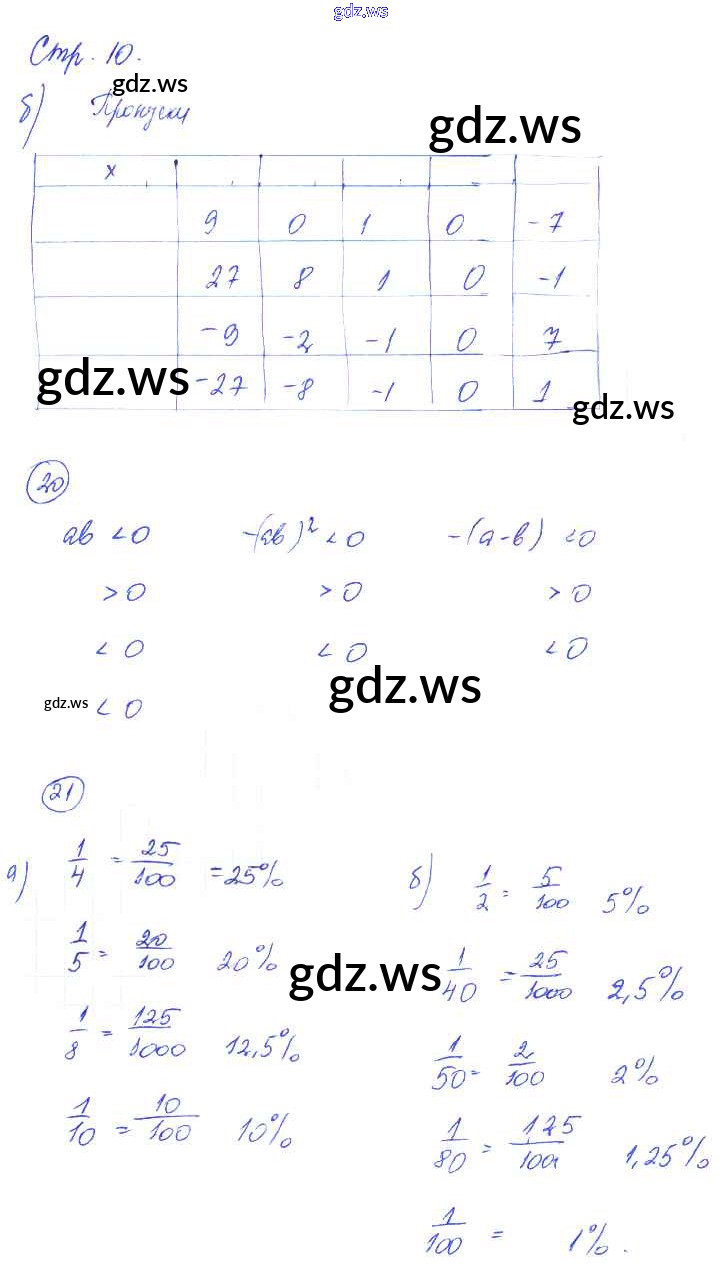 gdz.ws
Стр. 10.
gdz.ws
б) Пропуски
gdz.ws
x
9 0 1 0 -7
27 8 1 0 -1
-9 -2 -1 0 7
gdz.ws
-27 -8 -1 0 1
gdz.ws
20
ab <0 -(ab)² <0 -(a-b) <0
>0 >0 >0
<0 <0 <0
gdz.ws
gdz.ws
<0
21
а) 1/4 = 25/100 = 25%
1/5 = 20/100 20%
1/8 = 125/1000 12,5%
1/10 = 10/100 10%
gdz.ws
б) 1/2 = 5/100 5%
1/40 = 25/1000 2,5%
1/50 = 2/100 2%
1/80 = 1,25/100 1,25%
1/100 = 1%.